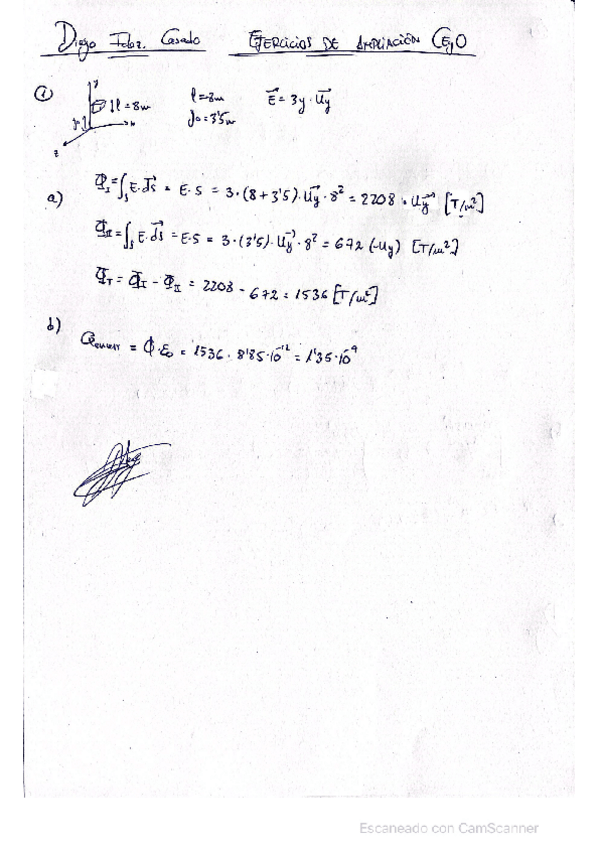 Diego Fdez. Casado EJERCICIOS DE AMPLIACIÓN CEyO
① y l = 8m l = 8m E⃗ = 3y · u⃗y
y₀ x y₀ = 3'5m
z
a) Φ_I = ∫_S E · ds⃗ = E · S = 3 · (8 + 3'5) · u⃗y · 8² = 2208 · u⃗y [T/m²]
Φ_II = ∫_S E · ds⃗ = E · S = 3 · (3'5) · u⃗y · 8² = 672 (-uy) [T/m²]
Φ_T = Φ_I - Φ_II = 2208 - 672 = 1536 [T/m²]
b)
= Φ · ε₀ = 1536 · 8'85 · 10⁻¹² = 1'35 · 10⁻⁹
Escaneado con CamScanner